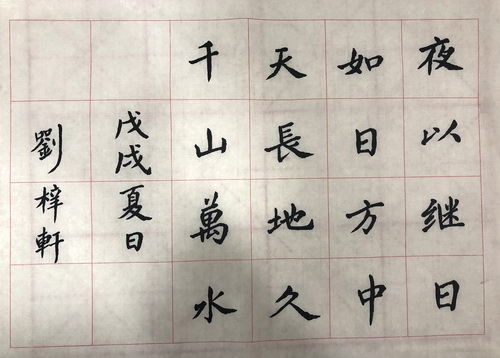 夜以继日
如日方中
天長地久
千山萬水
戊戌夏日
劉梓軒